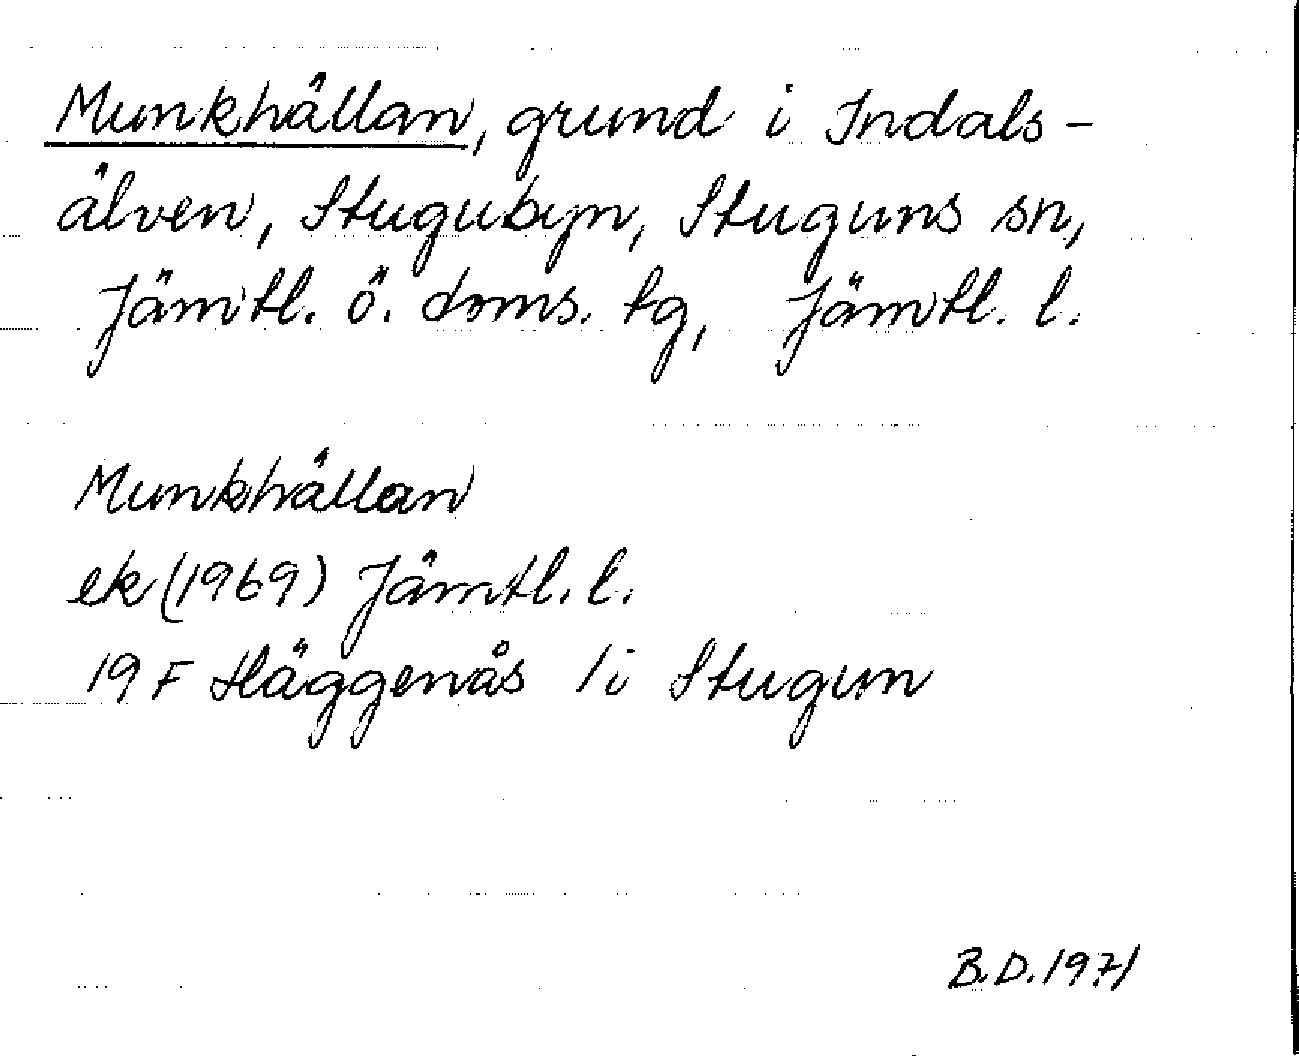 Munkhällan, grund i Indals-
älven, Stugubyn, Stuguns sn,
Jämtl. ö. doms. tg, Jämtl. l.
Munkhällan
ek (1969) Jämtl. l.
19 F Häggenås /i Stugun
B.D. 1971